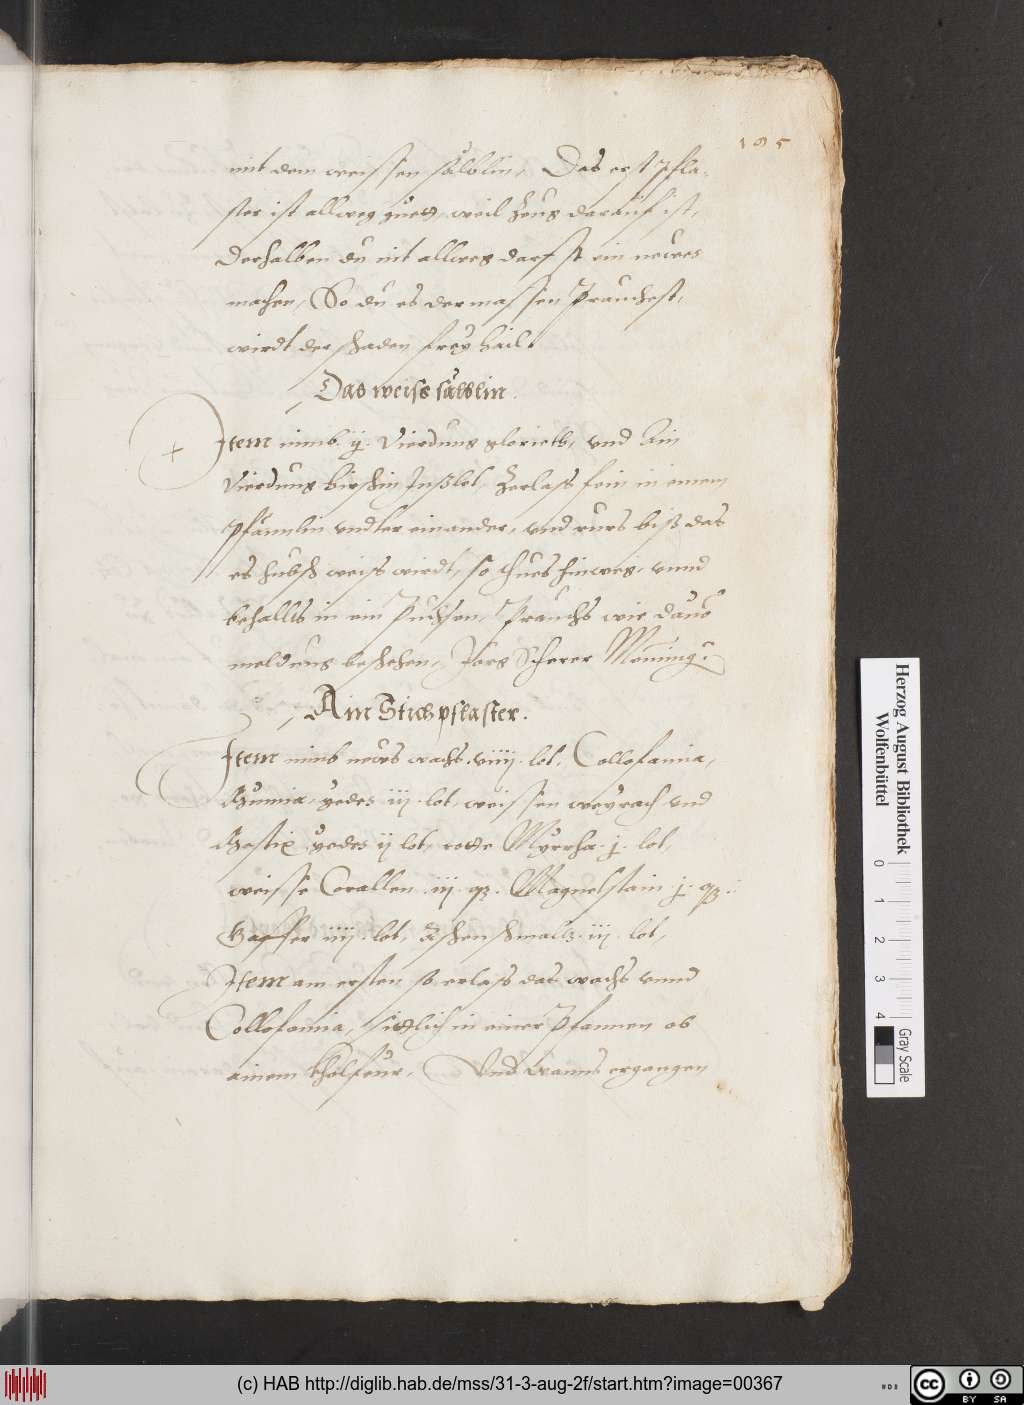 195
mit dem weissen sälblin, Das erst Pfla-
ster ist allweg guet, weil Zeug darauf ist,
Derhalben du nit allweg darfst ein newes
machen, So du es dermassen Prauchest,
wirdt der schaden frey hail.
Das weiss sälblin.
Item nimb ij. Vierdung gloriett, vnd Ain
Vierdung Inßlet, Zerlass fein in einem
Pfännlin vndter einander, vnd rurs biß das
es hubsch weiss wirdt, so thues hinweg, vnnd
behalts in ein Puchsen, Prauchs wie dauo
meldung beschehen, Jörg Scherer
Ain Stichpflaster.
Item nimb news wachs .viiij. lot, Collofainia,
yedes iij. lot, weissen weyrach vnd
Mastix yedes ij lot, rotte Myrrha .j. lot,
weisse Corallen .iij. qz. Magnetstain j. qz.
Gaffer iiij. lot, Aschenschmaltz .iij. lot,
Item am ersten so erlass das wachs vnnd
Collofainia, sittlich in einer Pfannen ob
ainem Kholfeur, Vnd wanns ergangen
Herzog August Bibliothek
Wolfenbüttel
0 1 2 3 4
Gray Scale
(c) HAB http://diglib.hab.de/mss/31-3-aug-2f/start.htm?image=00367
cc BY SA